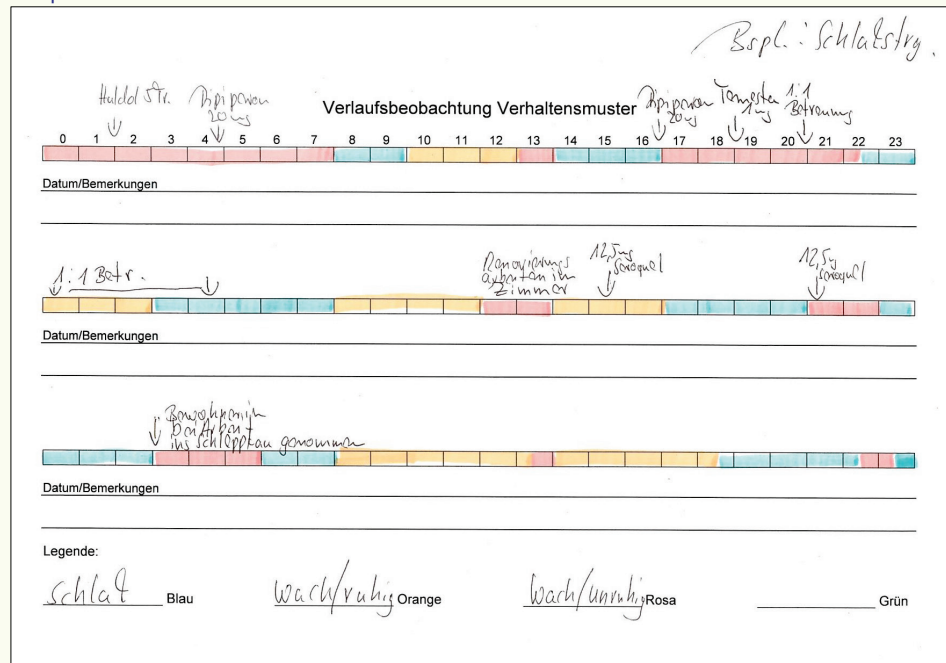 Bspl.: Schlafstrg.
Haldol Str.
Dipiperon
20mg
Verlaufsbeobachtung Verhaltensmuster
Dipiperon
20mg
Tavor
1mg
1:1
Betreuung
0 1 2 3 4 5 6 7 8 9 10 11 12 13 14 15 16 17 18 19 20 21 22 23
Datum/Bemerkungen
1:1 Betr.
Renovierungs
arbeiten im
Zimmer
12,5mg
Seroquel
12,5mg
Seroquel
Datum/Bemerkungen
Bewohnerin
bei Arbeit
ins Schlepptau genommen
Datum/Bemerkungen
Legende:
Schlaf Blau wach/ruhig Orange wach/unruhig Rosa Grün